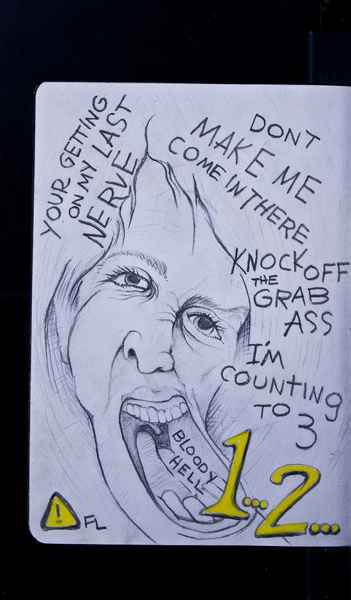 YOUR GETTING
ON MY LAST
NERVE
DONT
MAKE ME
COME IN THERE
KNOCK OFF
THE
GRAB
ASS
I'M
COUNTING
TO 3
BLOODY
HELL
1...
2...
!
FL